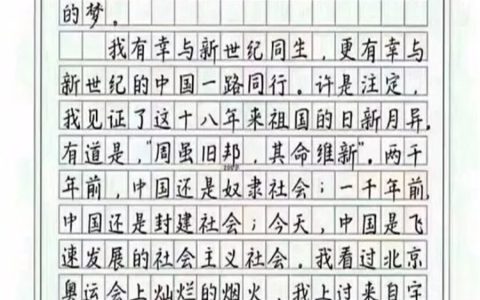 的梦。
我有幸与新世纪同生，更有幸与
新世纪的中国一路同行。许是注定，
我见证了这十八年来祖国的日新月异。
有道是，"周虽旧邦，其命维新"。两千
年前，中国还是奴隶社会；一千年前，
中国还是封建社会；今天，中国是飞
速发展的社会主义社会。我看过北京
奥运会上灿烂的烟火，我上过来自宇